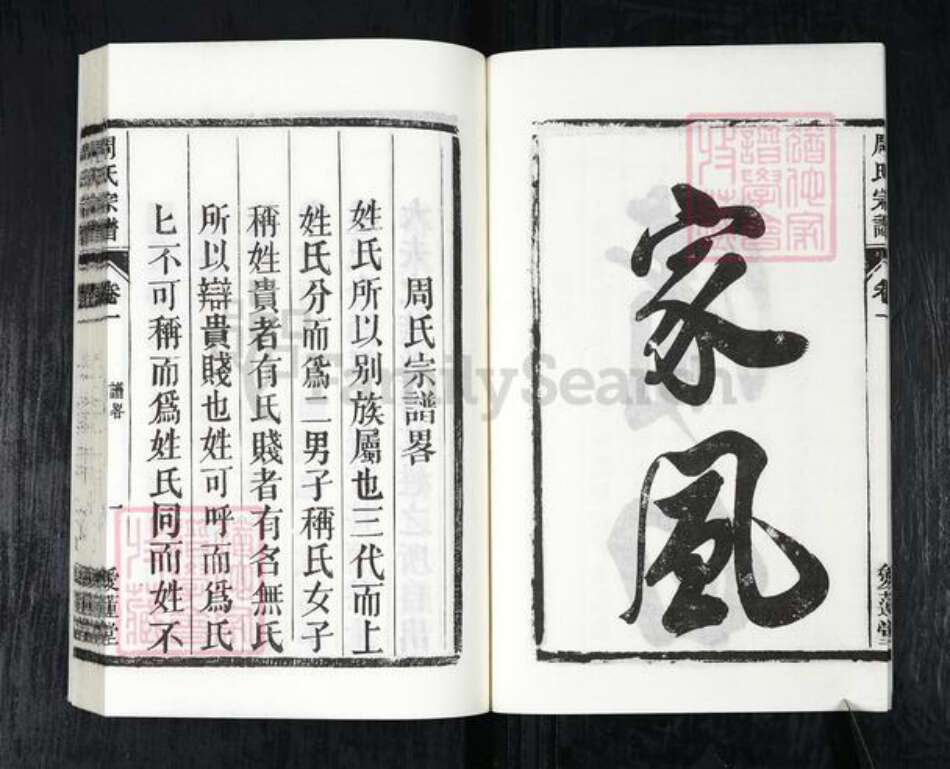 周氏宗譜
卷一
愛蓮堂
家風
周氏宗譜畧
姓氏所以別族屬也三代而上
姓氏分而爲二男子稱氏女子
稱姓貴者有氏賤者有名無氏
所以辯貴賤也姓可呼而爲氏
匕不可稱而爲姓氏同而姓不
周氏宗譜
卷一
譜畧
一
愛蓮堂
FamilySearch